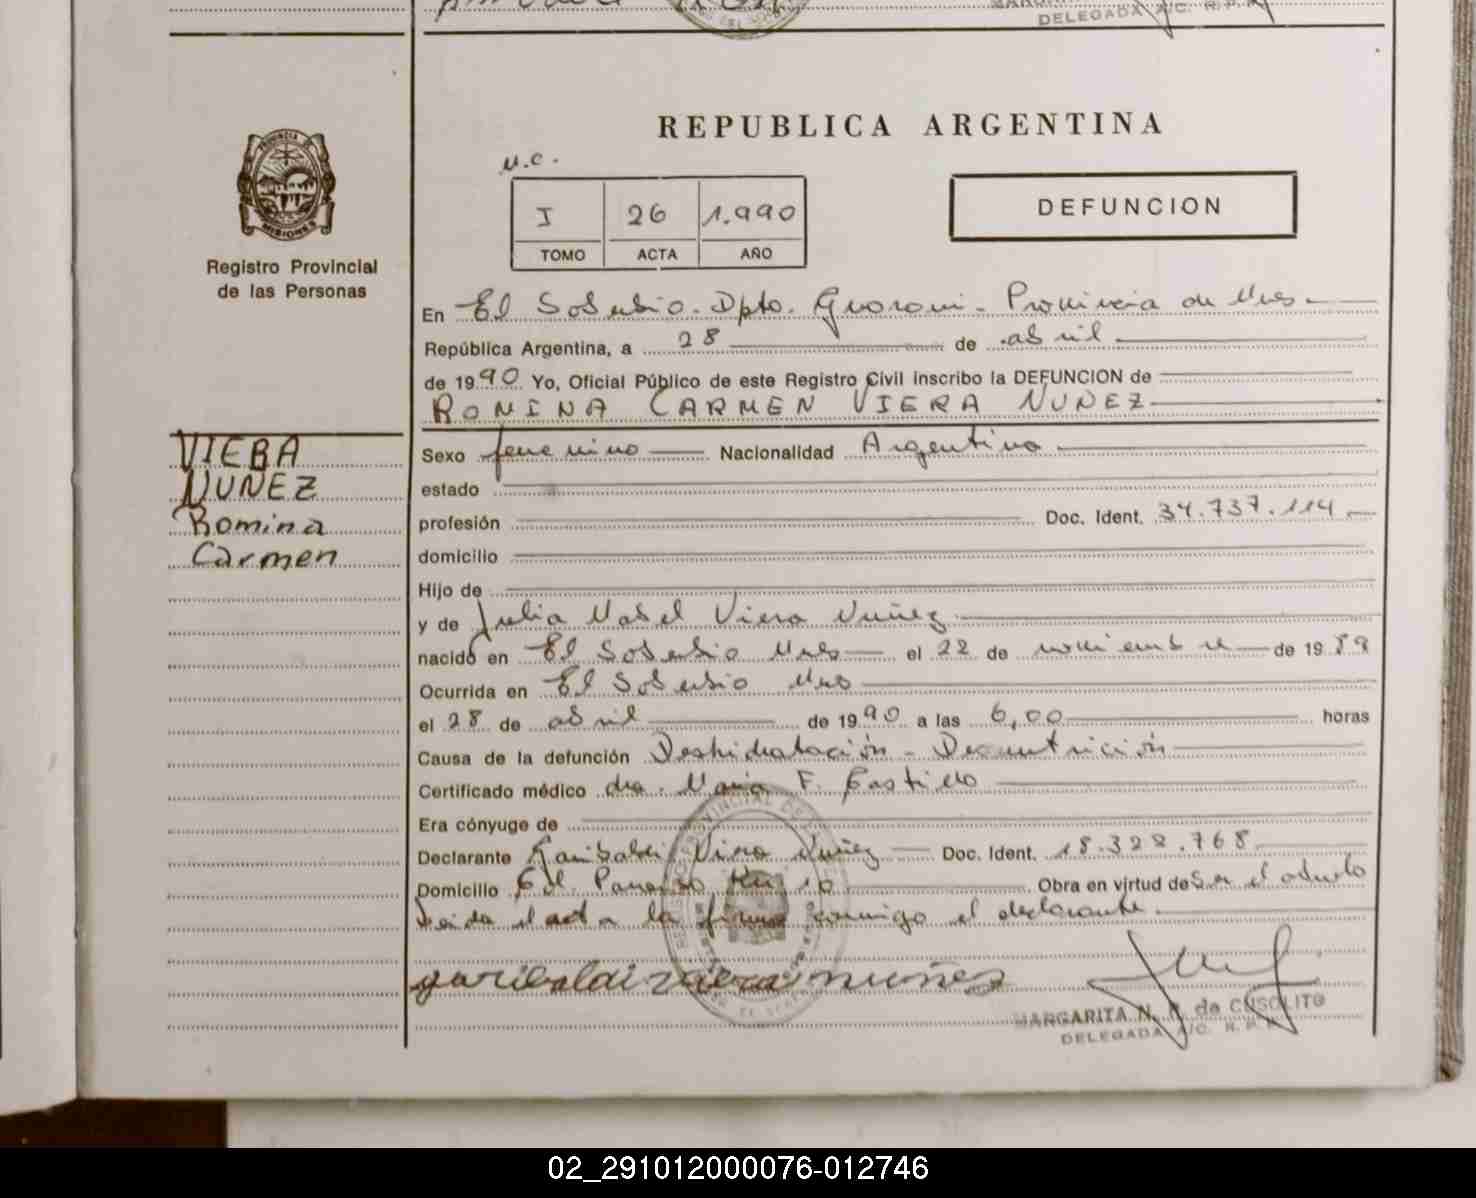 DELEGADA A/C. R. P. P.
REPUBLICA ARGENTINA
M.C.
I 26 1.990
TOMO ACTA AÑO
DEFUNCION
PROVINCIA DE MISIONES
Registro Provincial
de las Personas
En El Soberbio. Dpto. Guarani - Provincia de Mnes
República Argentina, a 28 de abril
de 1990 Yo, Oficial Público de este Registro Civil inscribo la DEFUNCION de
ROMINA CARMEN VIERA NUÑEZ
VIERA
NUÑEZ
Romina
Carmen
Sexo femenino Nacionalidad Argentina
estado
profesión Doc. Ident. 34.737.114
domicilio
Hijo de
y de Julia Mabel Viera Nuñez
nacido en El Soberbio Mnes el 22 de noviembre de 1989
Ocurrida en El Soberbio Mnes
el 28 de abril de 1990 a las 6,00 horas
Causa de la defunción Deshidratación - Desnutrición
Certificado médico dra. Maria F. Castillo
Era cónyuge de
Declarante Garibaldi Viera Nuñez Doc. Ident. 18.322.768
Domicilio Col. Paraiso Km 10 Obra en virtud de Ser el abuelo
Leida el acta la firma conmigo el declarante
garibaldi viera nuñes
MARGARITA N. de CUSOLITO
DELEGADA A/C. R. P. P.
02_291012000076-012746